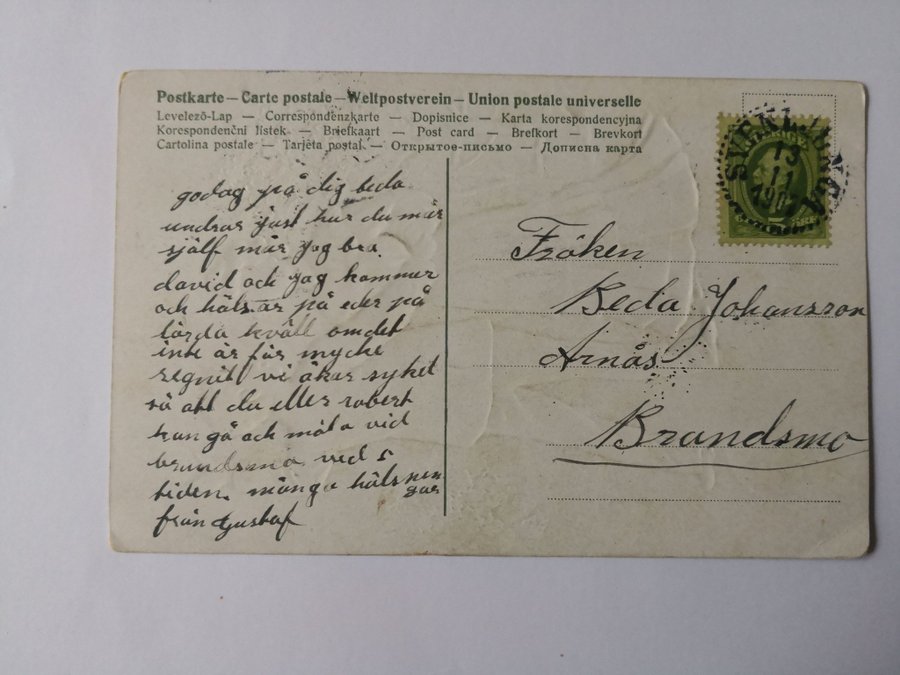 Postkarte – Carte postale – Weltpostverein – Union postale universelle
Levelező-Lap — Correspondenzkarte — Dopisnice — Karta korespondencyjna
Korespondenční lístek — Briefkaart — Post card — Brefkort — Brevkort
Cartolina postale — Tarjeta postal — Открытое-письмо — Дописна карта
SVENLJUNGA
13
11
godag på dig beda
undrar just hur du mår
sjelf mår jag bra
david och jag kommer
och hälsar på eder på
lörda kväll omdet
inte är för mycke
regnit vi åker syket
så att du eller robert
kan gå och möta vid
brandsmo ved 5
tiden. många hälsnen
gar
från Gustaf
Fröken
Beda Johansson
Arnås
Brandsmo